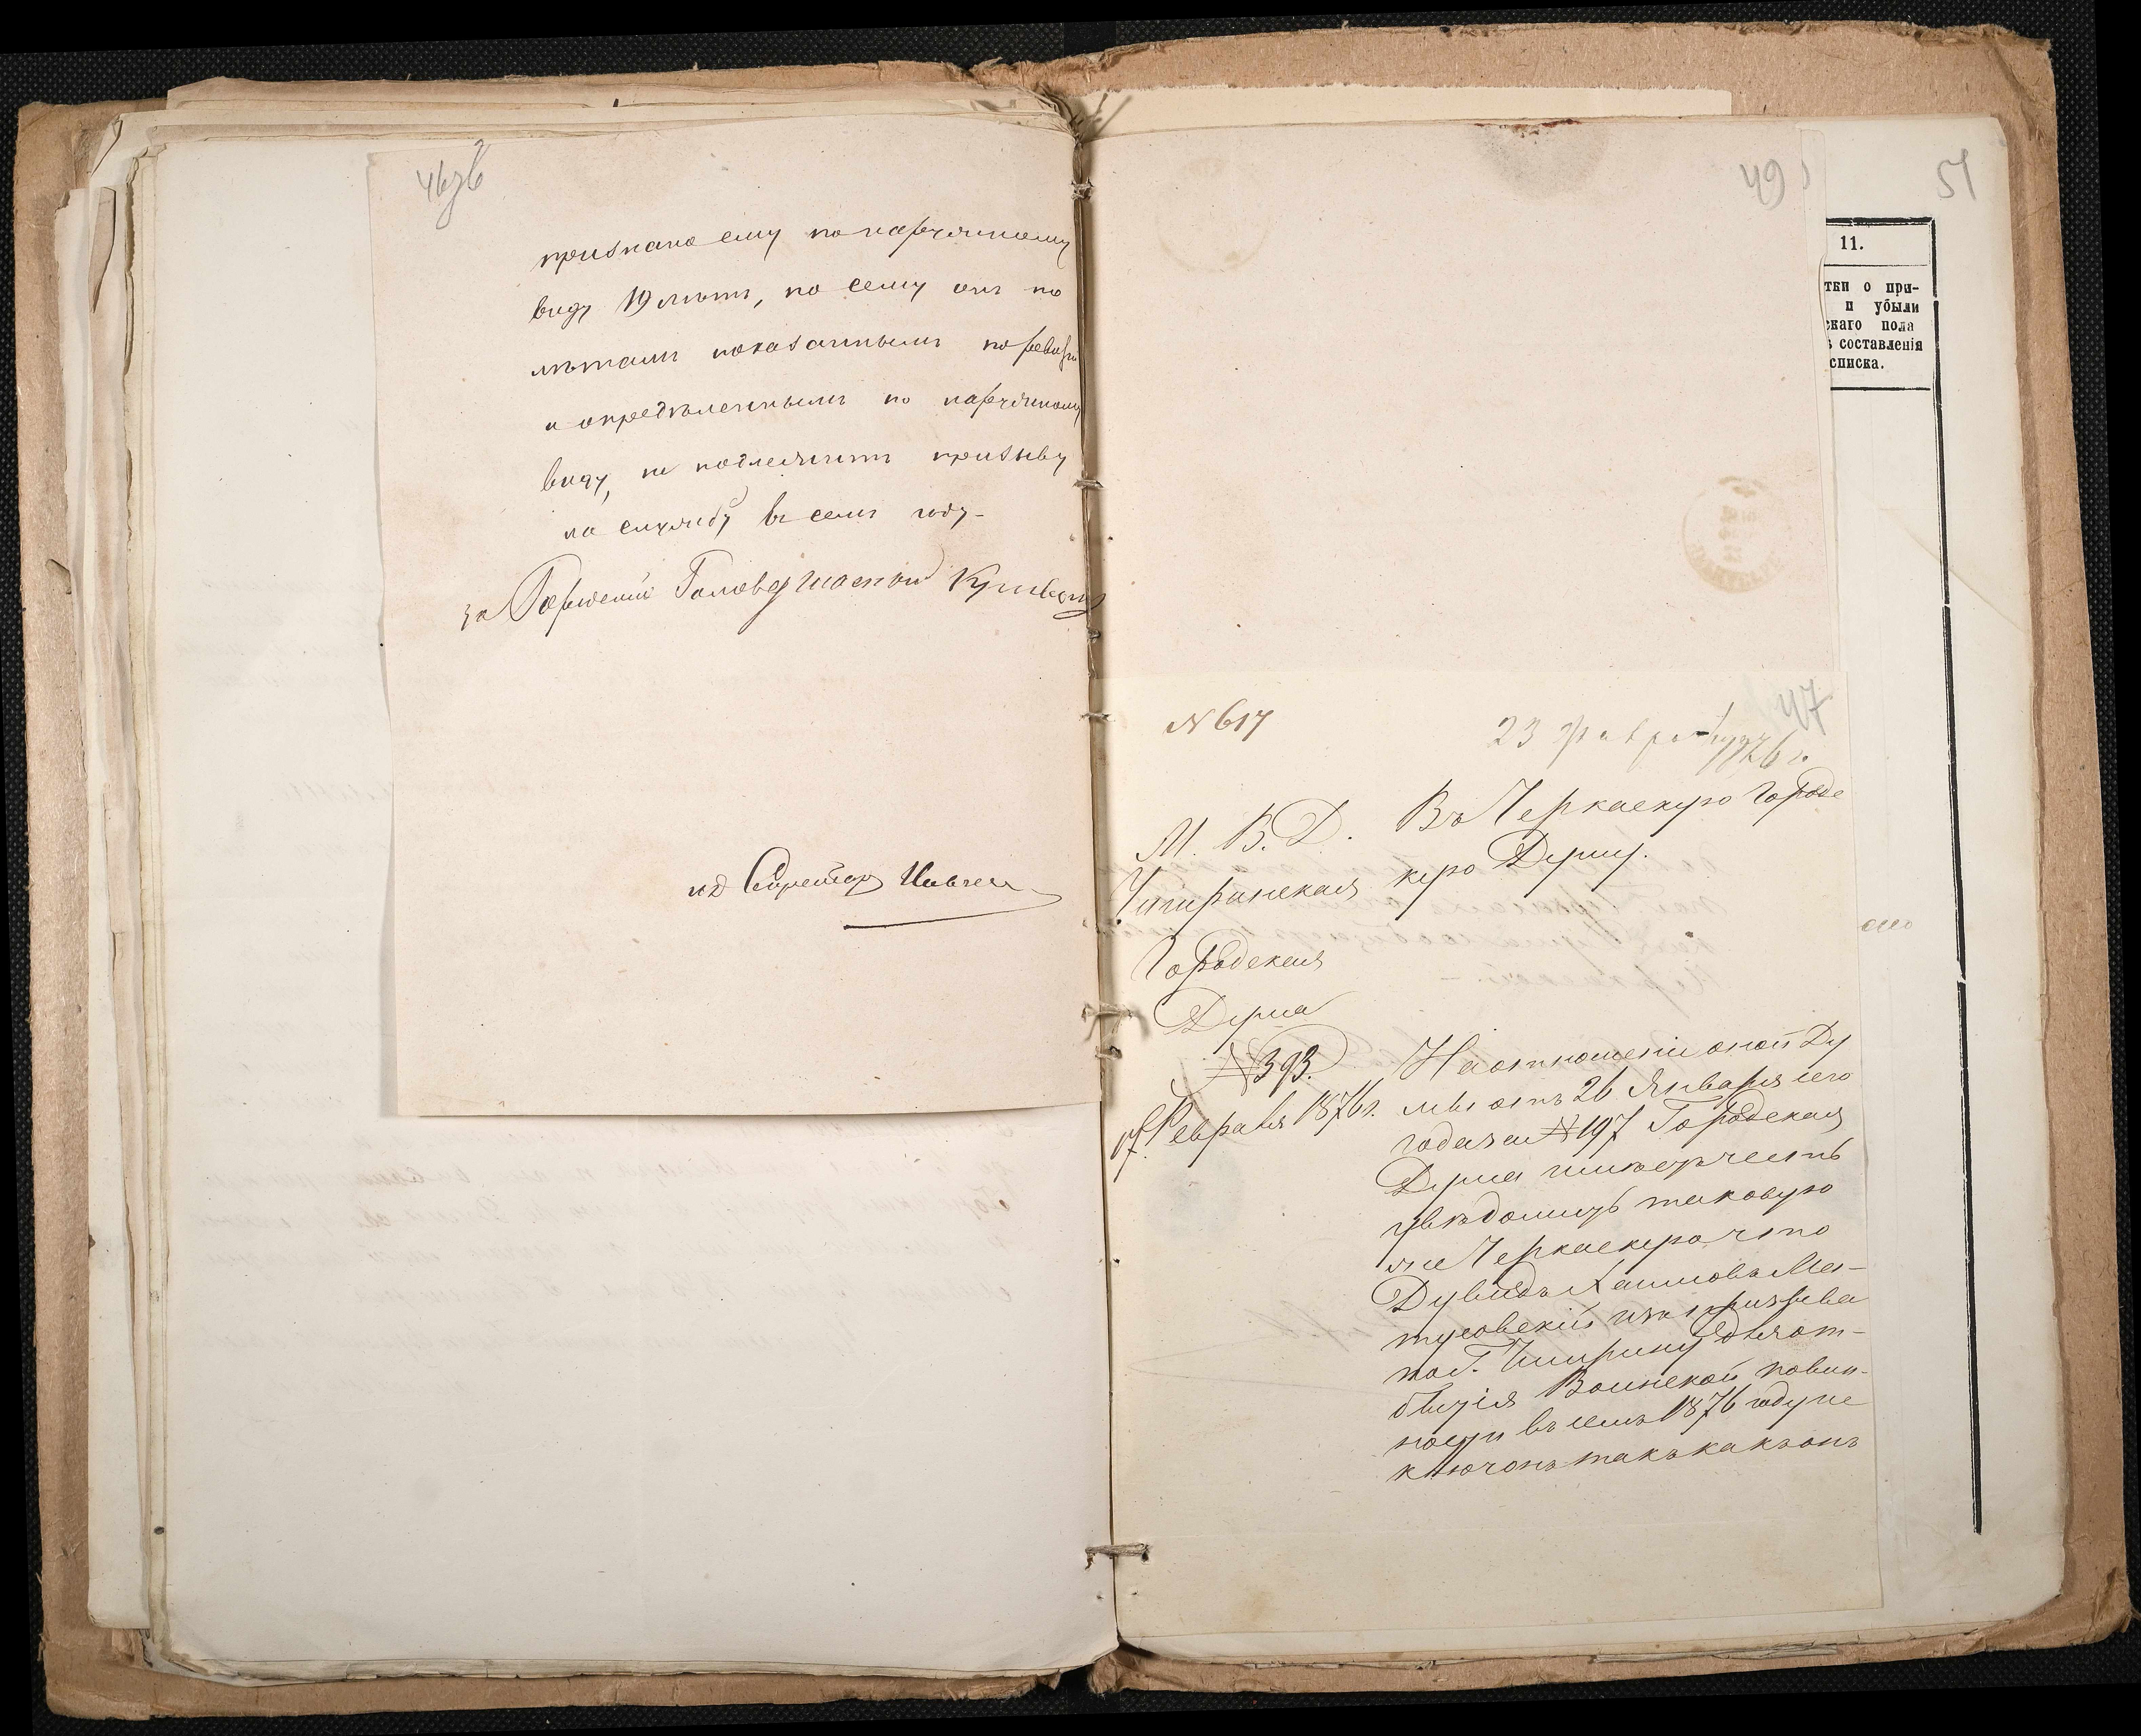 46 об
признано ему по наружному
виду 19 лѣтъ, по сему онъ по
лѣтамъ показаннымъ по ревизіи
и опредѣленнымъ по наружному
виду, не подлежитъ призыву
на службу въ семъ году.
за Городской Голова
ид Секретаря
49
51
11.
тки о при-
и убыли
скаго пола
ь составленія
списка.
47
N 617
23 февр 1876 г.
М. В. Д.
Чигиринская
Городская
Дума
№ 393.
17 Февраля 1876 г.
Въ Черкаскую Городс
кую Думу.
На отношеніе оной Ду
мы отъ 26 Января сего
года за № 197 Городская
Дума имѣетъ честь
увѣдомить таковую
же Черкаскую что
Дувидъ Хаимовъ Ма-
тусовскій изъ призыва
по Г. Чигирину для от-
бытія Воинской повин-
ности въ семъ 1876 году ис
ключонъ такъ какъ онъ